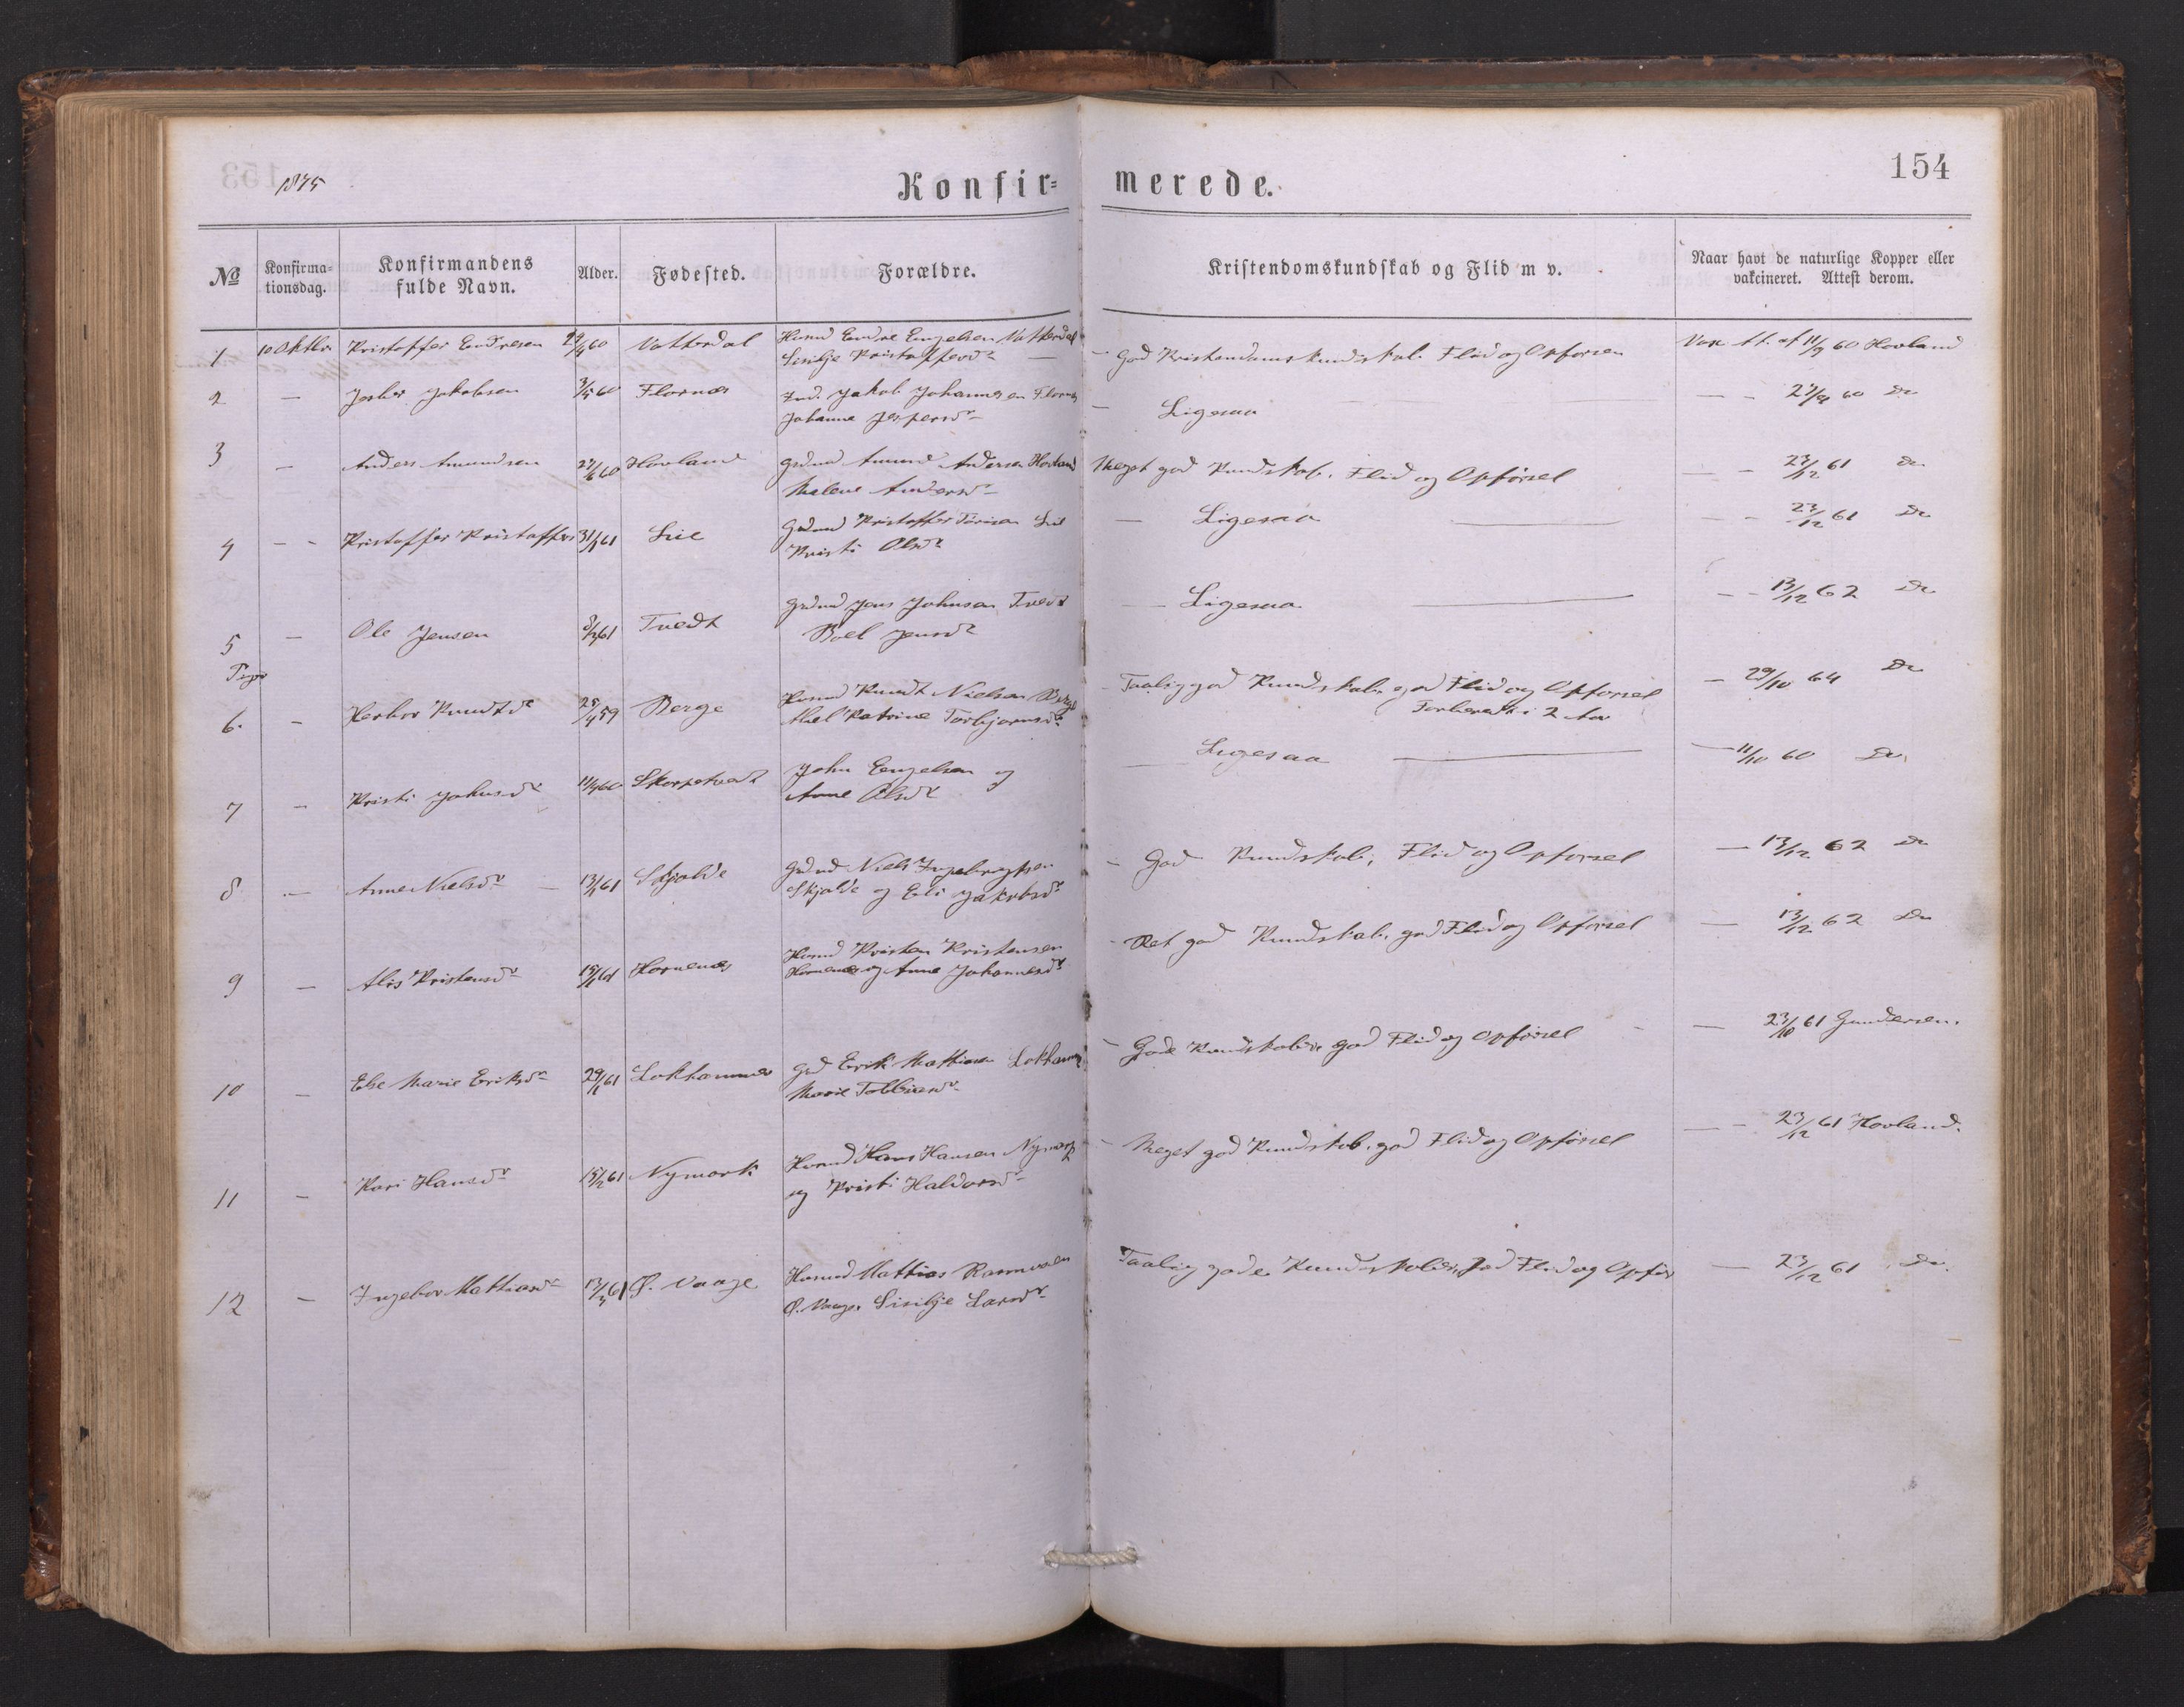 1875
Konfir=
merede.
154
№
Konfirma=
tionsdag.
Konfirmandens
fulde Navn.
Alder.
Fødested.
Forældre.
Kristendomskundskab og Flid m v.
Naar havt de naturlige Kopper eller
vakcineret. Attest derom.
1 10 Oktbr Kristoffer Endresen /4 60 Vatterdal Husmd Endre Engelsen Vatterdal
Kristoffersdr —
— God Kristendomskundskab Flid og Opførsen Vax Att. af 11/9 60 Hovland
2 — Jakobsen 3/5 60 Flornæs Jakob Johannesen Flornæs
Johanne Jespersdr
— Ligesaa — - 60 Do
3 — Anders Amundsen 27/6 60 Hovland Grdmd Amund Andersen Hovland
Malene Andersdr
Meget god Kundskab. Flid og Opførsel — - 23/12 61 Do
4 - - Kristoffer Kristoffers 31/1 61 Lie Grdmd Kristoffer Lie
Kristi Olsdr
— Ligesaa — - - 23/12 61 Do
5 — Ole Jensen 61 Tvedt Grdmd Jens Johnsen Tvedt
Boel Jensdr
— Ligesaa — - - 13/12 62 Do
Piger
6. — Herbor Knudtsdr 25/4 59 Berge Husmd Knudt Nielsen Berge
Abel Katrine Torbjørnsdr
- Taalig god Kundskab. god Flid og Opførsel
Forberedt i 2 Aar
— 29/10 64 Do
7 — Kristi Johnsdr 60 Skorpetvedt John Engelsen og
Anne Olsdr
— Ligesaa — — 11/10 60 Do.
8 — Anne Nielsdr — 13/1 61 Skjolde Grdmd Niels Ingebregtsen
Skjolde og Eli Jakobsdr
- God Kundskab, Flid og Opførsel — 13/12 62 Do
9 — Alis Kristensdr 61 Hornenæs Husmd Kristen Kristensen
Hornenæs og Anne Johannesdr
- Ret god Kundskab. god Flid og Opførsel — 13/12 62 Do
10 — Else Marie Eriksdr 29/1 61 Lokhammer Grd Erik Mathisen Lokhammer
Marie
- Gode Kundskaber god Flid og Opførsel — 23/10 61 Gundersen.
11 — Kari Hansdr 61 Nymark Husmd Hans Hansen Nymark
og Kristi Haldorsdr
- Meget god Kundskab. god Flid og Opførsel — - 23/12 61 Hovland.
12 — Ingebor Mathiasdr 13/3 61 Ø. Vaage Husmd Mathias Rasmusen
Ø. Vaage. Sisilje Larsdr
Taalig gode Kundskaber, god Flid og Opfør — 23/12 61 Do.